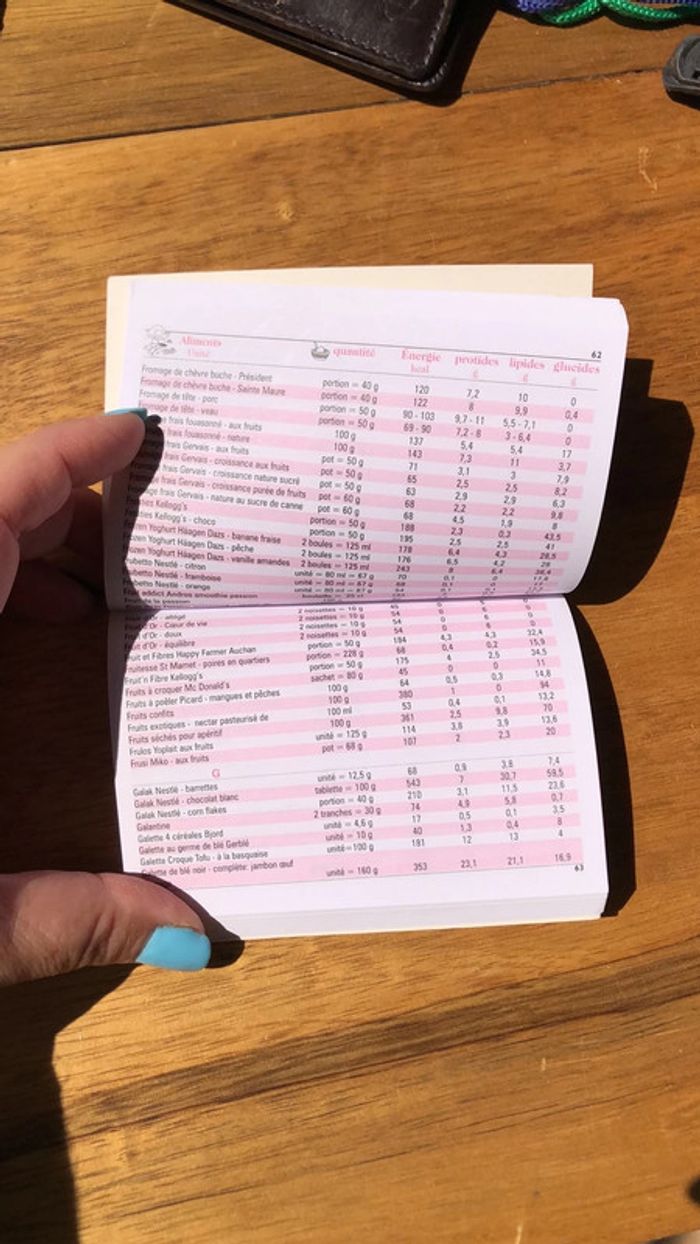 62
Aliments quantité Énergie protides lipides glucides
Unité kcal g g g
Fromage de chèvre buche - Président portion = 40 g 120 7,2 10 0
Fromage de chèvre buche - Sainte Maure portion = 40 g 122 8 9,9 0,4
Fromage de tête - porc portion = 50 g 90 - 103 9,7 - 11 5,5 - 7,1 0
Fromage de tête - veau portion = 50 g 69 - 90 7,2 - 8 3 - 6,4 0
frais fouasonné - aux fruits 100 g 137 5,4 5,4 17
frais fouasonné - nature 100 g 143 7,3 11 3,7
frais Gervais - aux fruits pot = 50 g 71 3,1 3 7,9
frais Gervais - croissance aux fruits pot = 50 g 65 2,5 2,5 8,2
frais Gervais - croissance nature sucré pot = 50 g 63 2,9 2,9 6,3
frais Gervais - croissance purée de fruits pot = 60 g 68 2,2 2,2 9,8
frais Gervais - nature au sucre de canne pot = 60 g 68 4,5 1,9 8
Kellogg's portion = 50 g 188 2,3 0,3 43,5
Kellogg's - choco portion = 50 g 195 2,5 2,5 41
Yoghurt Häagen Dazs - banane fraise 2 boules = 125 ml 178 6,4 4,3 28,5
Yoghurt Häagen Dazs - pêche 2 boules = 125 ml 176 6,5 4,2 28
Yoghurt Häagen Dazs - vanille amandes 2 boules = 125 ml 243 8 6,4 36,4
Nestlé - citron unité = 80 ml = 67 g 70 0,1 0
Nestlé - framboise unité = 80 ml = 67 g 68 0,1 0
Nestlé - orange unité = 80 ml = 67 g
addict Andros smoothie passion
d'Or - allégé 2 noisettes = 10 g 45 0 5 0
d'Or - Cœur de vie 2 noisettes = 10 g 54 0 6 0
d'Or - doux 2 noisettes = 10 g 54 0 6 0
d'Or - équilibre 2 noisettes = 10 g 54 0 6 0
Fruit et Fibres Happy Farmer Auchan portion = 50 g 184 4,3 4,3 32,4
Fruitesse St Mamet - poires en quartiers portion = 228 g 68 0,4 0,2 15,9
Fruit'n Fibre Kellogg's portion = 50 g 175 4 2,5 34,5
Fruits à croquer Mc Donald's sachet = 80 g 45 0 0 11
Fruits à poêler Picard - mangues et pêches 100 g 64 0,5 0,3 14,8
Fruits confits 100 g 380 1 0 94
Fruits exotiques - nectar pasteurisé de 100 ml 53 0,4 0,1 13,2
Fruits séchés pour apéritif 100 g 361 2,5 9,8 70
Frulos Yoplait aux fruits unité = 125 g 114 3,8 3,9 13,6
Frusi Miko - aux fruits pot = 68 g 107 2 2,3 20
G
Galak Nestlé - barrettes unité = 12,5 g 68 0,9 3,8 7,4
Galak Nestlé - chocolat blanc tablette = 100 g 543 7 30,7 59,5
Galak Nestlé - corn flakes portion = 40 g 210 3,1 11,5 23,6
Galantine 2 tranches = 30 g 74 4,9 5,8 0,7
Galette 4 céréales Bjord unité = 4,6 g 17 0,5 0,1 3,5
Galette au germe de blé Gerblé unité = 10 g 40 1,3 0,4 8
Galette Croque Tofu - à la basquaise unité=100 g 181 12 13 4
Galette de blé noir - complète: jambon œuf unité = 160 g 353 23,1 21,1 16,9
63